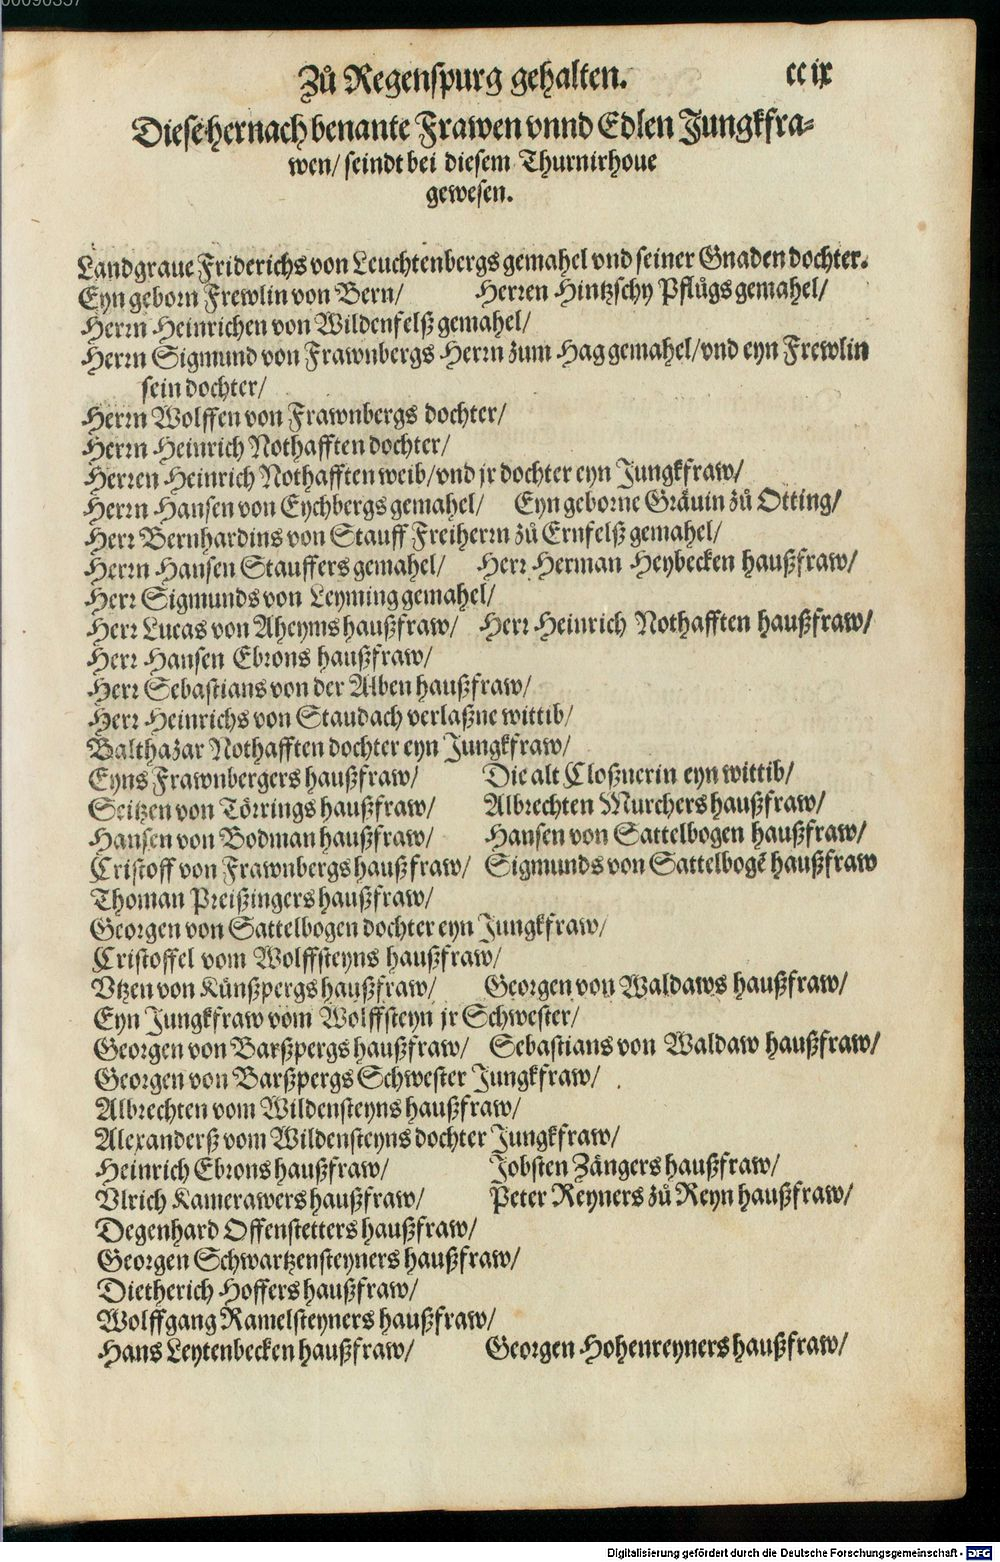 Zů Regenspurg gehalten. ccix
Diese hernach benante Frawen vnnd Edlen Jungkfra-
wen/ seindt bei diesem Thurnirhoue
gewesen.
Landgraue Friderichs von Leuchtenbergs gemahel vnd seiner Gnaden dochter.
Eyn geborn Frewlin von Bern/ Herren Hintzschy Pflůgs gemahel/
Herrn Heinrichen von Wildenfelß gemahel/
Herrn Sigmund von Frawnbergs Herrn zum Hag gemahel/vnd eyn Frewlin
sein dochter/
Herrn Wolffen von Frawnbergs dochter/
Herrn Heinrich Nothafften dochter/
Herren Heinrich Nothafften weib/vnd jr dochter eyn Jungkfraw/
Herrn Hansen von Eychbergs gemahel/ Eyn geborne Gräuin zů Otting/
Herr Bernhardins von Stauff Freiherrn zů Ernfelß gemahel/
Herrn Hansen Stauffers gemahel/ Herr Herman Heybecken haußfraw/
Herr Sigmunds von Leyming gemahel/
Herr Lucas von Aheyms haußfraw/ Herr Heinrich Nothafften haußfraw/
Herr Hansen Ebrons haußfraw/
Herr Sebastians von der Alben haußfraw/
Herr Heinrichs von Staudach verlaßne wittib/
Balthazar Nothafften dochter eyn Jungkfraw/
Eyns Frawnbergers haußfraw/ Die alt Cloßnerin eyn wittib/
Seitzen von Törrings haußfraw/ Albrechten Murchers haußfraw/
Hansen von Bodman haußfraw/ Hansen von Sattelbogen haußfraw/
Cristoff von Frawnbergs haußfraw/ Sigmunds von Sattelbogē haußfraw
Thoman Preißingers haußfraw/
Georgen von Sattelbogen dochter eyn Jungkfraw/
Cristoffel vom Wolffsteyns haußfraw/
Vtzen von Künßpergs haußfraw/ Georgen von Waldaws haußfraw/
Eyn Jungkfraw vom Wolffsteyn jr Schwester/
Georgen von Barßpergs haußfraw/ Sebastians von Waldaw haußfraw/
Georgen von Barßpergs Schwester Jungkfraw/
Albrechten vom Wildensteyns haußfraw/
Alexanderß vom Wildensteyns dochter Jungkfraw/
Heinrich Ebrons haußfraw/ Jobsten Zängers haußfraw/
Vlrich Kamerawers haußfraw/ Peter Reyners zů Reyn haußfraw/
Degenhard Offenstetters haußfraw/
Georgen Schwartzensteyners haußfraw/
Dietherich Hoffers haußfraw/
Wolffgang Ramelsteyners haußfraw/
Hans Leytenbecken haußfraw/ Georgen Hohenreyners haußfraw/
Digitalisierung gefördert durch die Deutsche Forschungsgemeinschaft - DFG